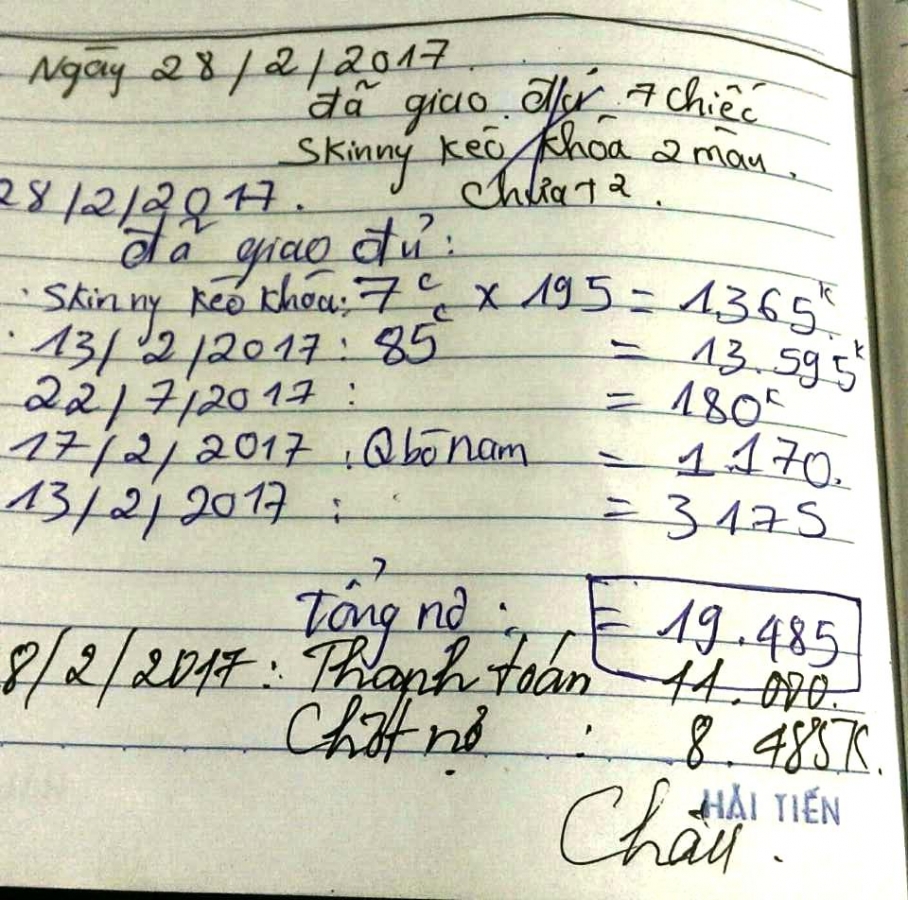 Ngày 28/2/2017.
đã giao đủ 7 chiếc
Skinny kéo khóa 2 màu.
28/2/2017. chưa t²
đã giao đủ:
. Skinny kéo khóa: 7c x 195 = 1365k
. 13/2/2017: 85c = 13.595k
22/7/2017: = 180k
17/2/2017: Q bò nam = 1.170.
13/2/2017: = 3175
Tổng nợ: = 19.485
8/2/2017: Thanh toán 11.000.
Chốt nợ: 8.485K.
HẢI TIẾN
Châu.